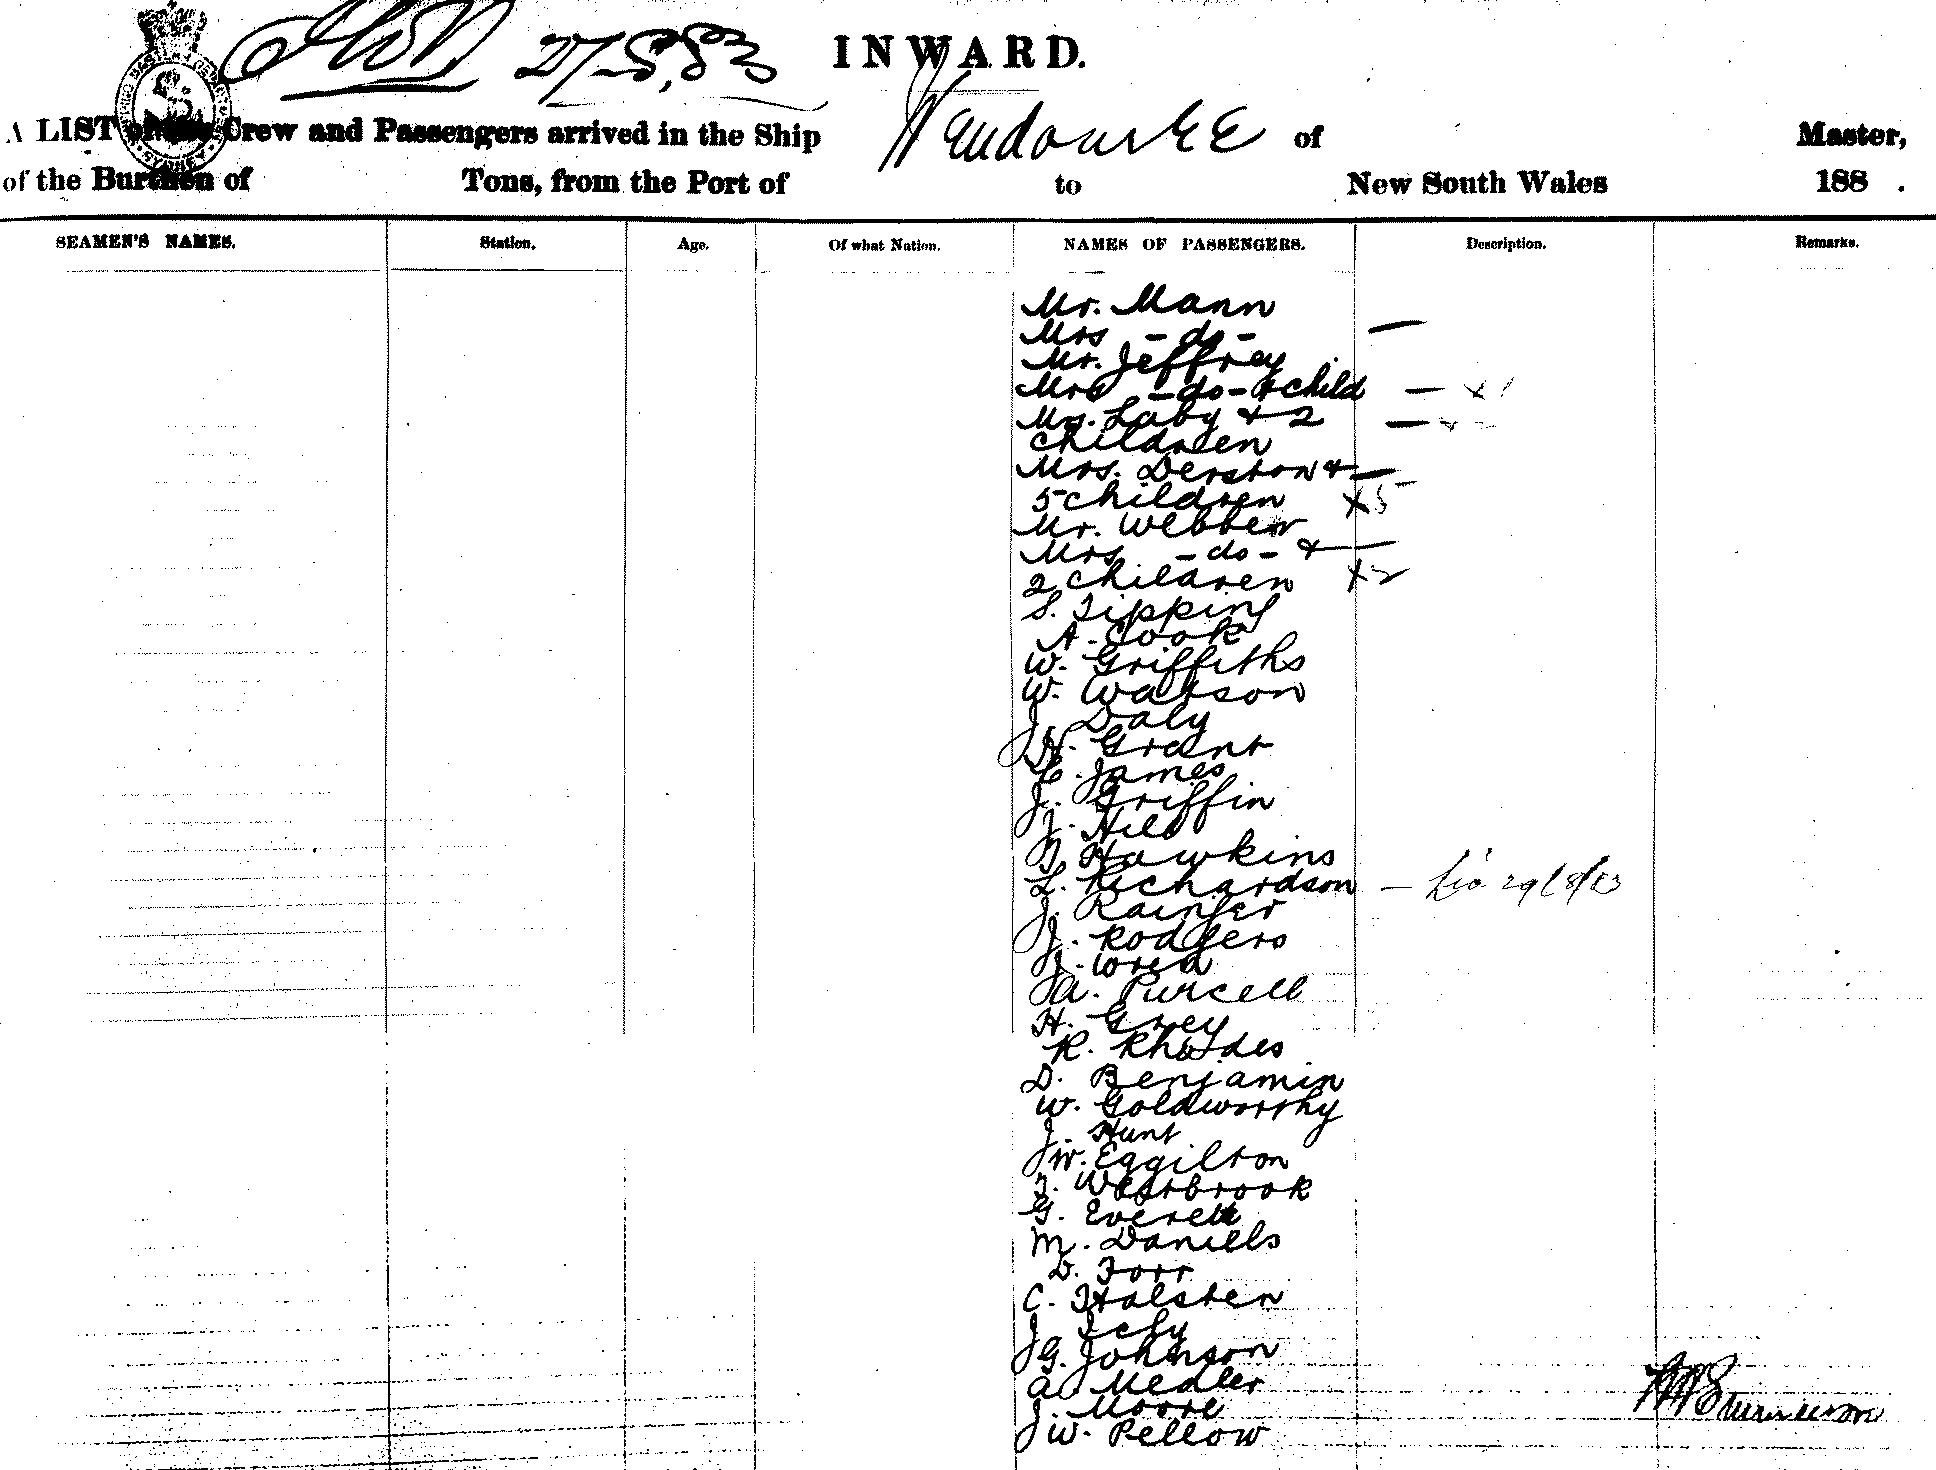 27/8/83 INWARD.
A LIST of the Crew and Passengers arrived in the Ship Wendouree of Master,
of the Burthen of Tons, from the Port of to New South Wales 188 .
SEAMEN'S NAMES. Station. Age. Of what Nation. NAMES OF PASSENGERS. Description. Remarks.
Mr. Mann
Mrs - do - —
Mr. Jeffrey
Mrs - do - & child — x 1
Mrs. Laby & 2 — x 2
children
Mrs. Derston & —
5 children x 5
Mr. Webber
Mrs - do - & —
2 children x 2
S. Tipping
A. Cook
W. Griffiths
W. Watson
J. Daly
H. Grant
C. James
J. Griffin
J. Hill
T. Hawkins
L. Richardson — 29/8/83
J. Rainger
J. Rodgers
J. Wred
A. Purcell
H. Grey
R. Rhodes
D. Benjamin
W. Goldworthy
J. Hunt
W. Eggilton
T. Westbrook
G. Everett
M. Daniells
D. Torr
C. Halsten
J.
G. Johnson
A. Medler
J. Moore
W. Pellow